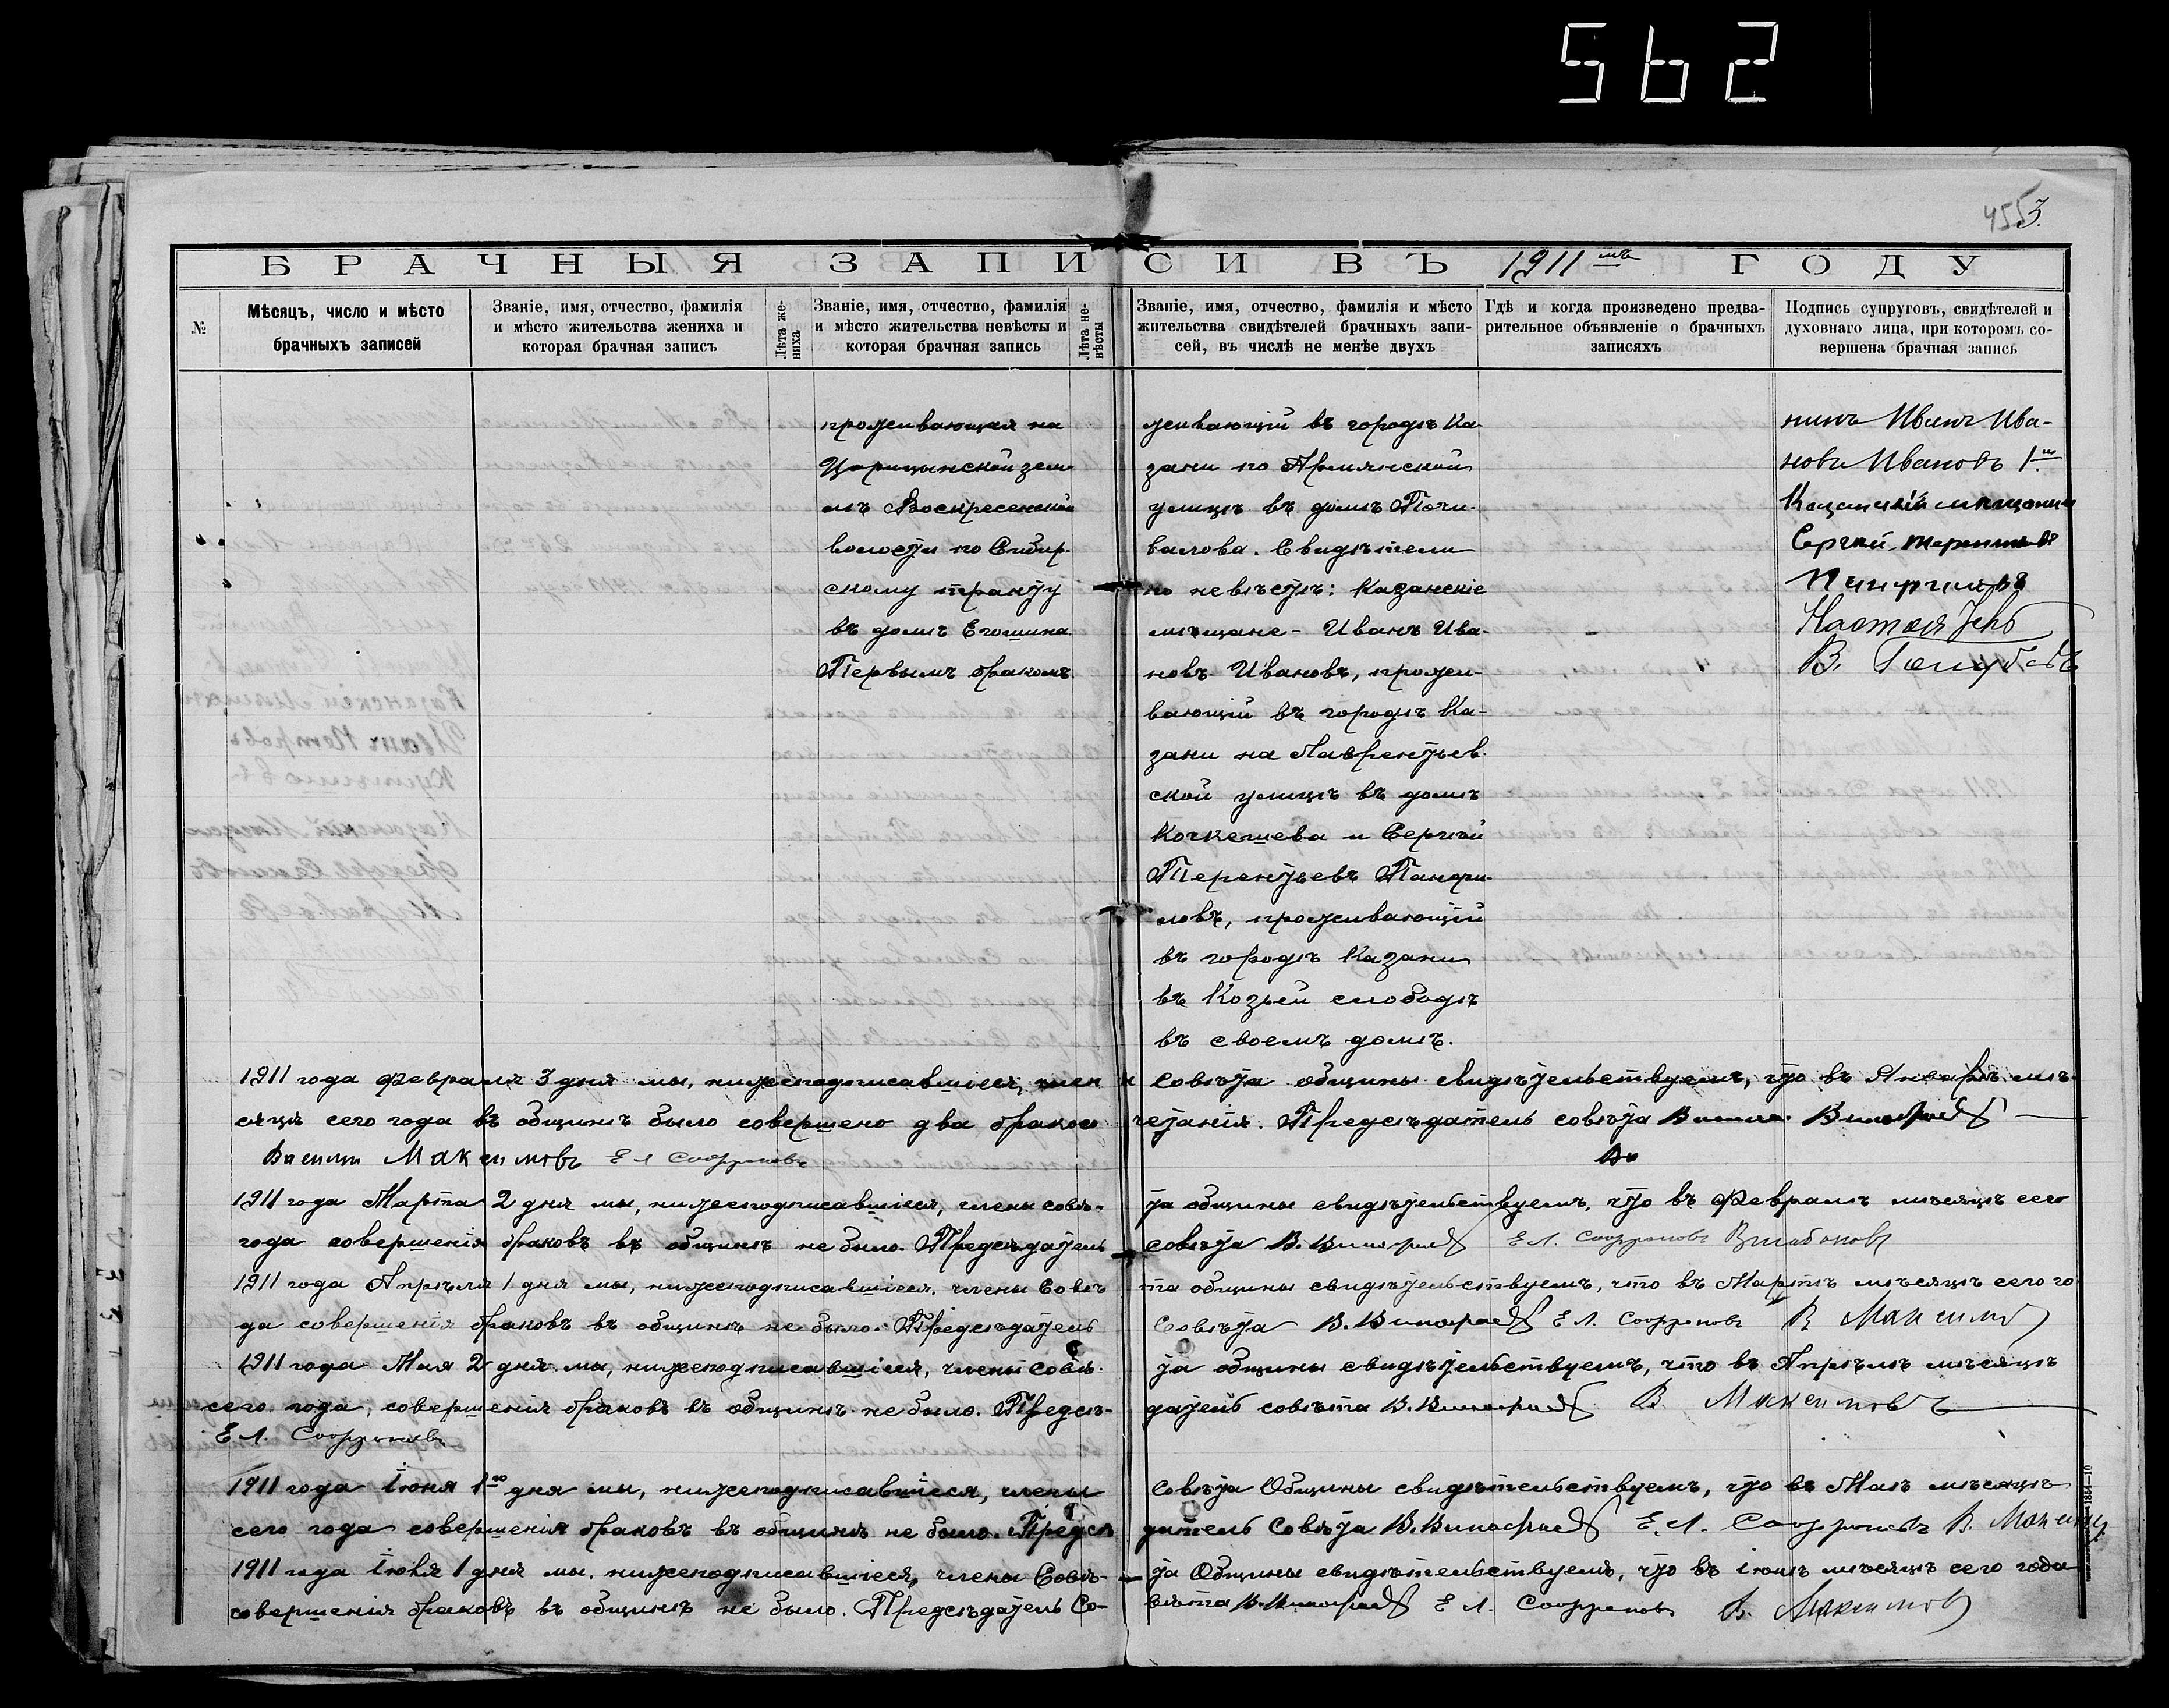 562
455
3.
БРАЧНЫЯ ЗАПИСИ ВЪ 1911мъ ГОДУ
№
Мѣсяцъ, число и мѣсто
брачныхъ записей
Званіе, имя, отчество, фамилія
и мѣсто жительства жениха и
которая брачная запись
Лѣта же-
ниха
Званіе, имя, отчество, фамилія
и мѣсто жительства невѣсты и
которая брачная запись
Лѣта не-
вѣсты
Званіе, имя, отчество, фамилія и мѣсто
жительства свидѣтелей брачныхъ запи-
сей, въ числѣ не менѣе двухъ
Гдѣ и когда произведено предва-
рительное объявленіе о брачныхъ
записяхъ
Подпись супруговъ, свидѣтелей и
духовнаго лица, при которомъ со-
вершена брачная запись
проживающая на
Царицынской зем-
лѣ Воскресенской
волости по Сибир-
скому тракту
въ домѣ Егошина.
Первымъ бракомъ.
живающій въ городѣ Ка-
зани по Армянской
улицѣ въ домѣ Почи-
валова. Свидѣтели
по невѣстѣ: Казанскіе
мѣщане - Иванъ Ива-
новъ Ивановъ, прожи-
вающій въ городѣ Ка-
зани на Лаврентьев-
ской улицѣ въ домѣ
Кочкешева и Сергѣй
Терентьевъ Панфи-
ловъ, проживающій
въ городѣ Казани
въ Козьей слободѣ
въ своемъ домѣ.
нинъ Иванъ Ива-
новъ Ивановъ 1й
Казанскій мѣщанин
Сергей Терентьевъ
Панфиловъ
Настоятель
В. Голубевъ
1911 года Февраля 3 дня мы, нижеподписавшіеся, члены совѣта общины свидѣтельствуемъ, что въ Январѣ мѣ-
сяцѣ сего года въ общинѣ было совершено два бракосочетанія. Предсѣдатель совѣта
Василій Максимовъ Ел Соффоновъ
1911 года Марта 2 дня мы, нижеподписавшіеся, члены совѣ-та общины свидѣтельствуемъ, что въ Февралѣ мѣсяцѣ сего
года совершенія браковъ въ общинѣ не было. Предсѣдатель совѣта В. Виноградовъ Е Л. Соффоновъ
1911 года Апрѣля 1 дня мы, нижеподписавшіеся, члены Совѣта общины свидѣтельствуемъ, что въ Мартѣ мѣсяцѣ сего го-
да совершенія браковъ въ общинѣ не было. Предсѣдатель Совѣта В. Виноградовъ Е Л. Соффоновъ В Максимовъ
1911 года Мая 2 дня мы, нижеподписавшіеся, члены совѣ-та общины свидѣтельствуемъ, что въ Апрѣлѣ мѣсяцѣ
сего года, совершенія браковъ въ общинѣ не было. Предсѣ-датель совѣта В. Виноградовъ В. Максимовъ
Е Л. Соффоновъ
1911 года Іюня 1го дня мы, нижеподписавшіеся, члены совѣта Общины свидѣтельствуемъ, что въ Маѣ мѣсяцѣ
сего года совершенія браковъ въ общинѣ не было. Предсѣдатель Совѣта В. Виноградовъ Е. Л. Соффоновъ В. Максимов
1911 года Іюля 1 дня мы, нижеподписавшіеся, члены Совѣ-та Общины свидѣтельствуемъ, что въ іюнѣ мѣсяцѣ сего года
совершенія браковъ въ общинѣ не было. Предсѣдатель Со-вѣта В. Виноградовъ Е Л. Соффоновъ В. Максимовъ